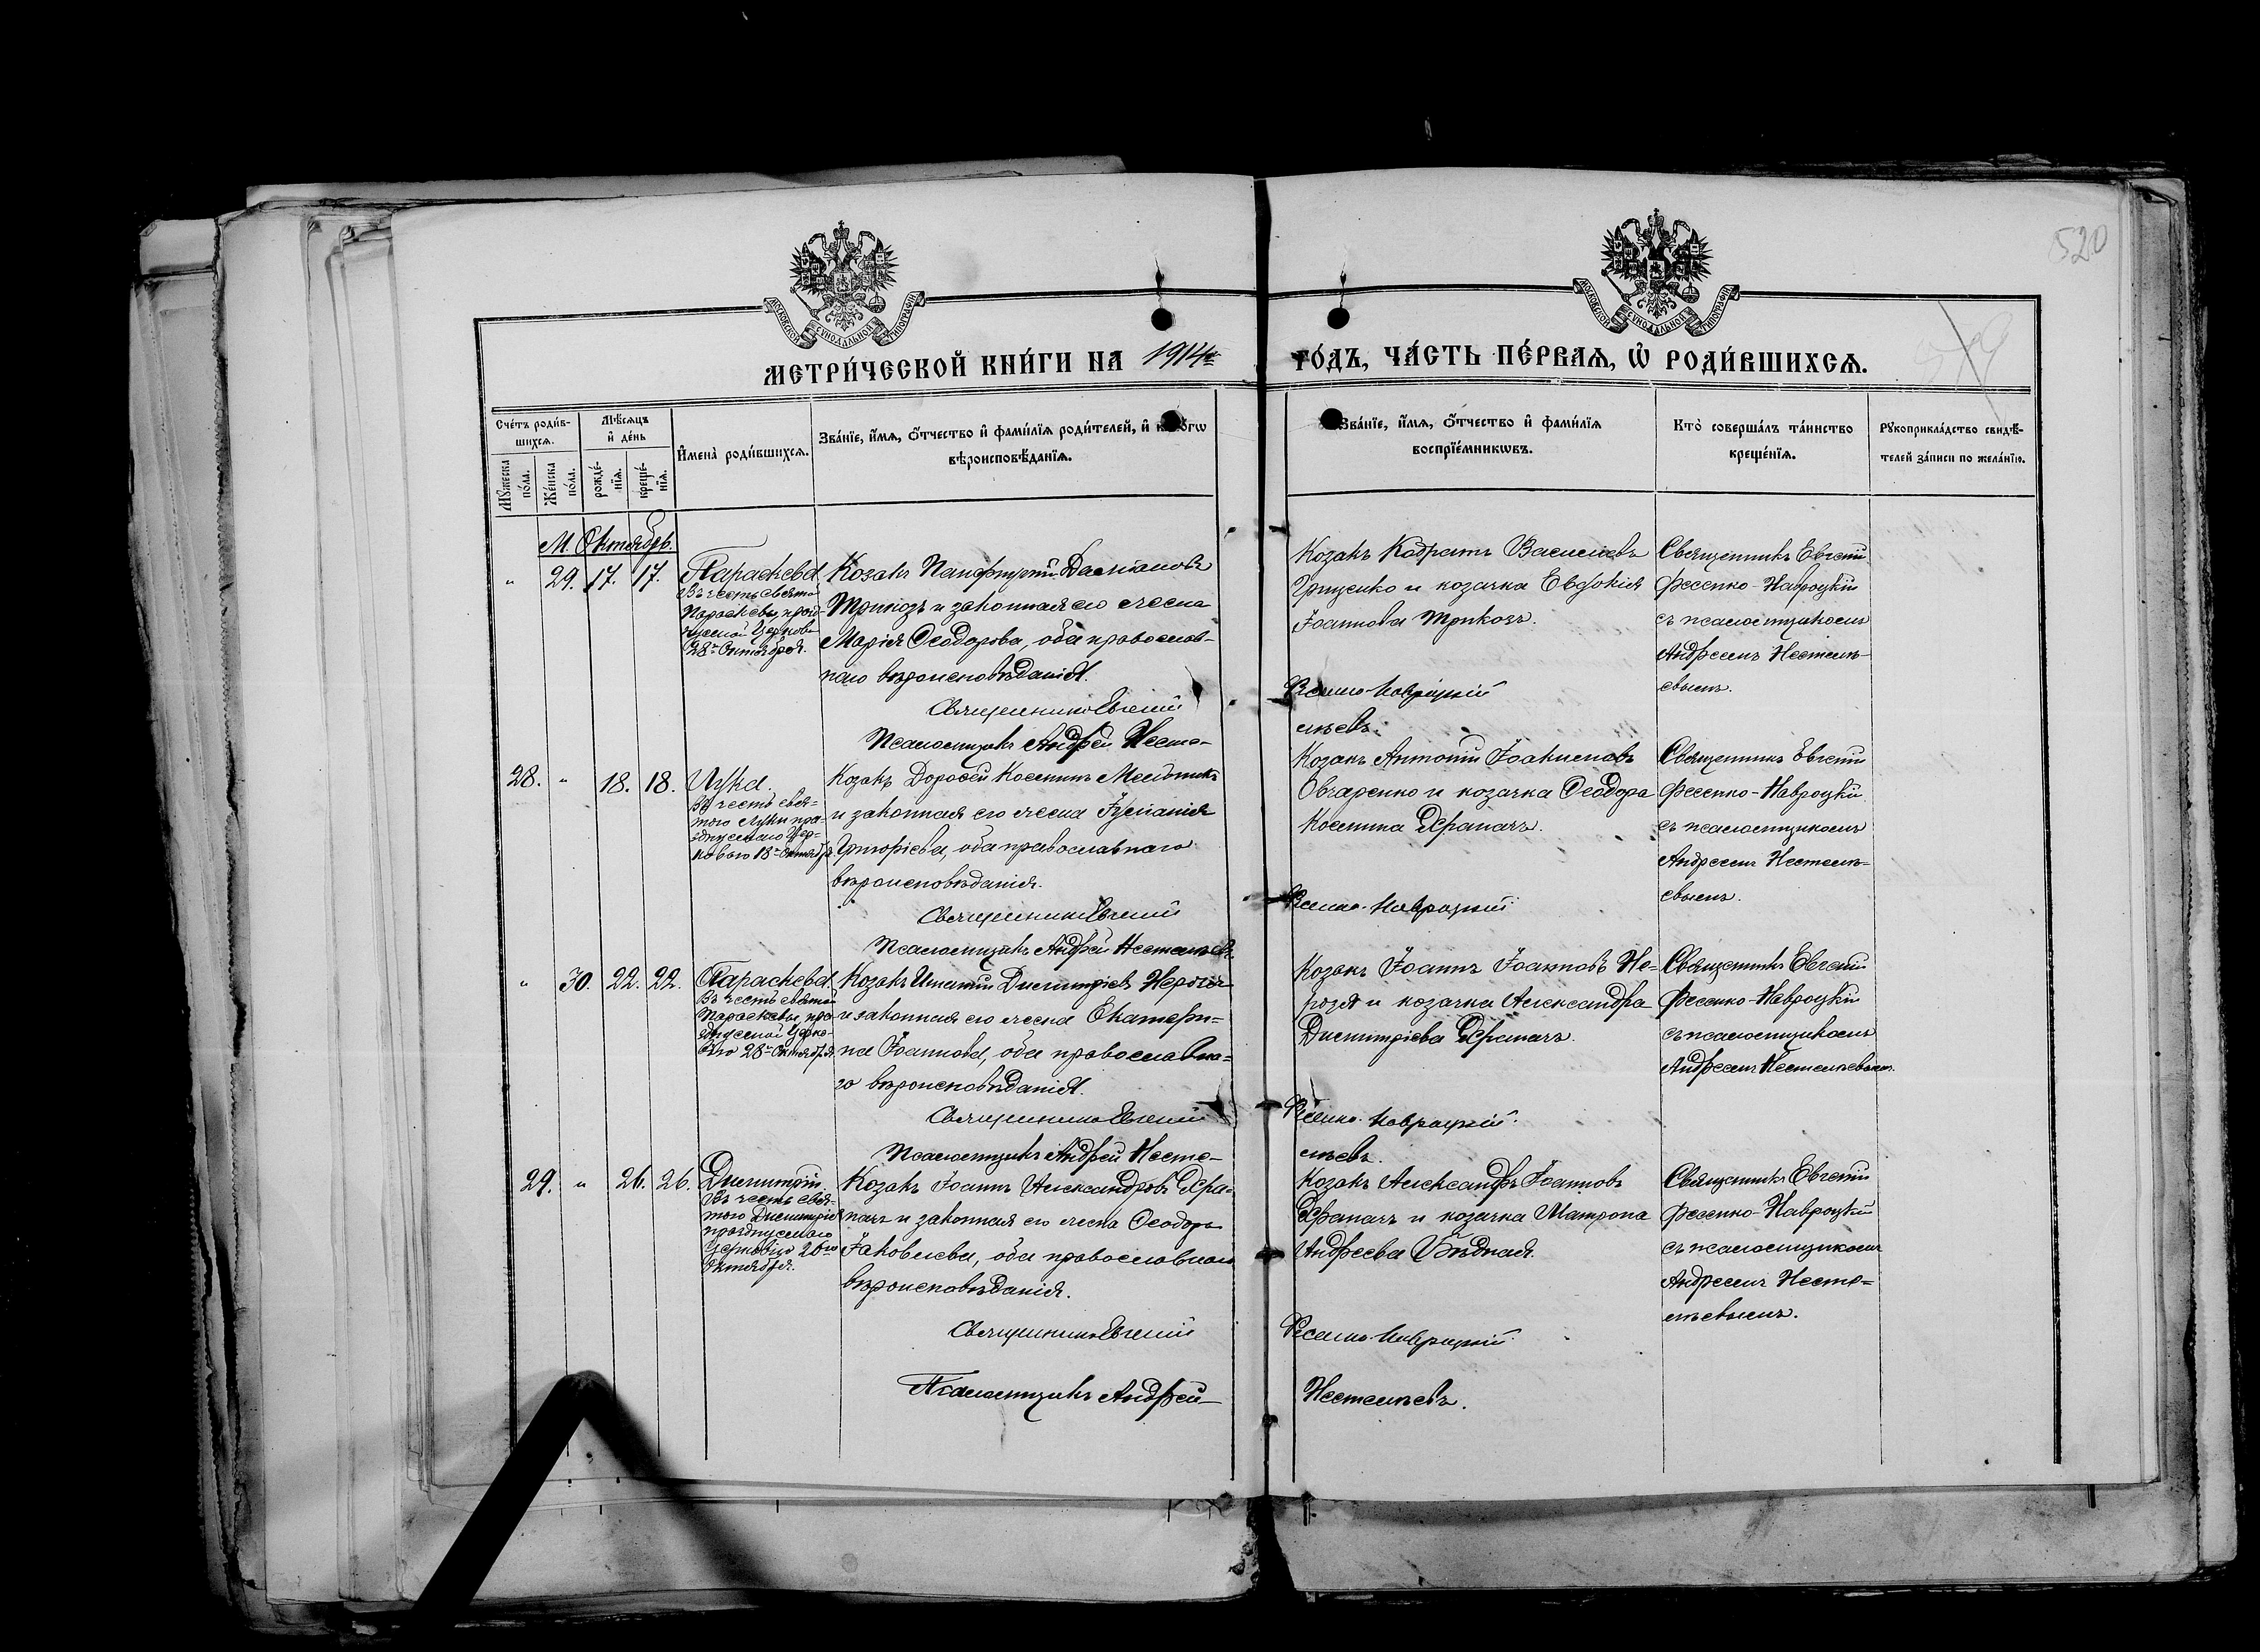 520
МОСКОВСКОЙ СѴНОДАЛЬНОЙ ТИПОГРАФІИ
МОСКОВСКОЙ СѴНОДАЛЬНОЙ ТИПОГРАФІИ
МЕТРИ́ЧЕСКОЙ КНИ́ГИ НА 1914й ГО́ДЪ, ЧА́СТЬ ПЕ́РВАѦ, Ѡ҆ РОДИ́ВШИХСѦ.
Сче́тъ роди́в-
шихсѧ.
Мꙋ́жеска по́ла.
Же́нска по́ла.
Мѣ́сѧцъ
и҆ де́нь
рожде́-
нїѧ.
креще́-
нїѧ.
И҆мена̀ роди́вшихсѧ.
Зва́нїе, и҆́мѧ, ѻ҆́тчество и҆ фами́лїѧ роди́телей, и҆
вѣроисповѣ́данїѧ.
Зва́нїе, и҆́мѧ, ѻ҆́тчество и҆ фами́лїѧ
воспрїе́мникѡвъ.
Кто̀ соверша́лъ та́инство
креще́нїѧ.
Рꙋкоприкла́дство свидѣ́-
телей за́писи по жела́нїю.
М. Октябрь.
" 29. 17. 17.
Параскева.
Въ честь святой
Параскевы, празд-
нуемой Церковью
28го Октября.
Козакъ Панфутрій Даміановъ
Трикозъ и законная его жена
Марія Ѳеодорова, оба православ-
наго вѣроисповѣданія.
Священникъ Евгеній Фесенко-Навроцкій
Псаломщикъ Андрей Несте-
лѣевъ.
Козакъ Кодратъ Васильевъ
Грищенко и козачка Евдокія
Іоаннова Трикозъ.
Священникъ Евгеній
Фесенко-Навроцкій
съ псаломщикомъ
Андреемъ
28. " 18. 18.
Лука.
Въ честь свя-
того Луки пра-
зднуемаго Цер-
ковью 18го Октября.
Козакъ Дороѳей Косминъ Мельникъ
и законная его жена Іуліанія
Григоріева, оба православнаго
вѣроисповѣданія.
Священникъ Евгеній Фесенко-Навроцкій
Псаломщикъ Андрей
Козакъ Антоній Іоакимовъ
Овчаренко и козачка Ѳеодора
Космина Драпачъ.
Священникъ Евгеній
Фесенко-Навроцкій
съ псаломщикомъ
Андреемъ
" 30. 22. 22.
Параскева.
Въ честь святой
Параскевы, пра-
зднуемой Церко-
вью 28го Октября.
Козакъ Игнатій Димитріевъ
и законная его жена Екатери-
на Іоаннова, оба православна-
го вѣроисповѣданія.
Священникъ Евгеній Фесенко-Навроцкій.
Псаломщикъ Андрей Несте-
лѣевъ.
Козакъ Іоаннъ Іоанновъ
и козачка Александра
Димитріева Драпачъ.
Священникъ Евгеній
Фесенко-Навроцкій
съ псаломщикомъ
Андреемъ
29. " 26. 26.
Димитрій.
Въ честь свя-
того Димитрія
празднуемаго
Церковью 26го
Октября.
Козакъ Іоаннъ Александровъ Дра-
пачъ и законная его жена Ѳеодора
Іаковлева, оба православнаго
вѣроисповѣданія.
Священникъ Евгеній Фесенко-Навроцкій.
Псаломщикъ Андрей
Козакъ Александръ Іоанновъ
Драпачъ и козачка Матрона
Андреева Бѣдная.
Священникъ Евгеній
Фесенко-Навроцкій
съ псаломщикомъ
Андреемъ